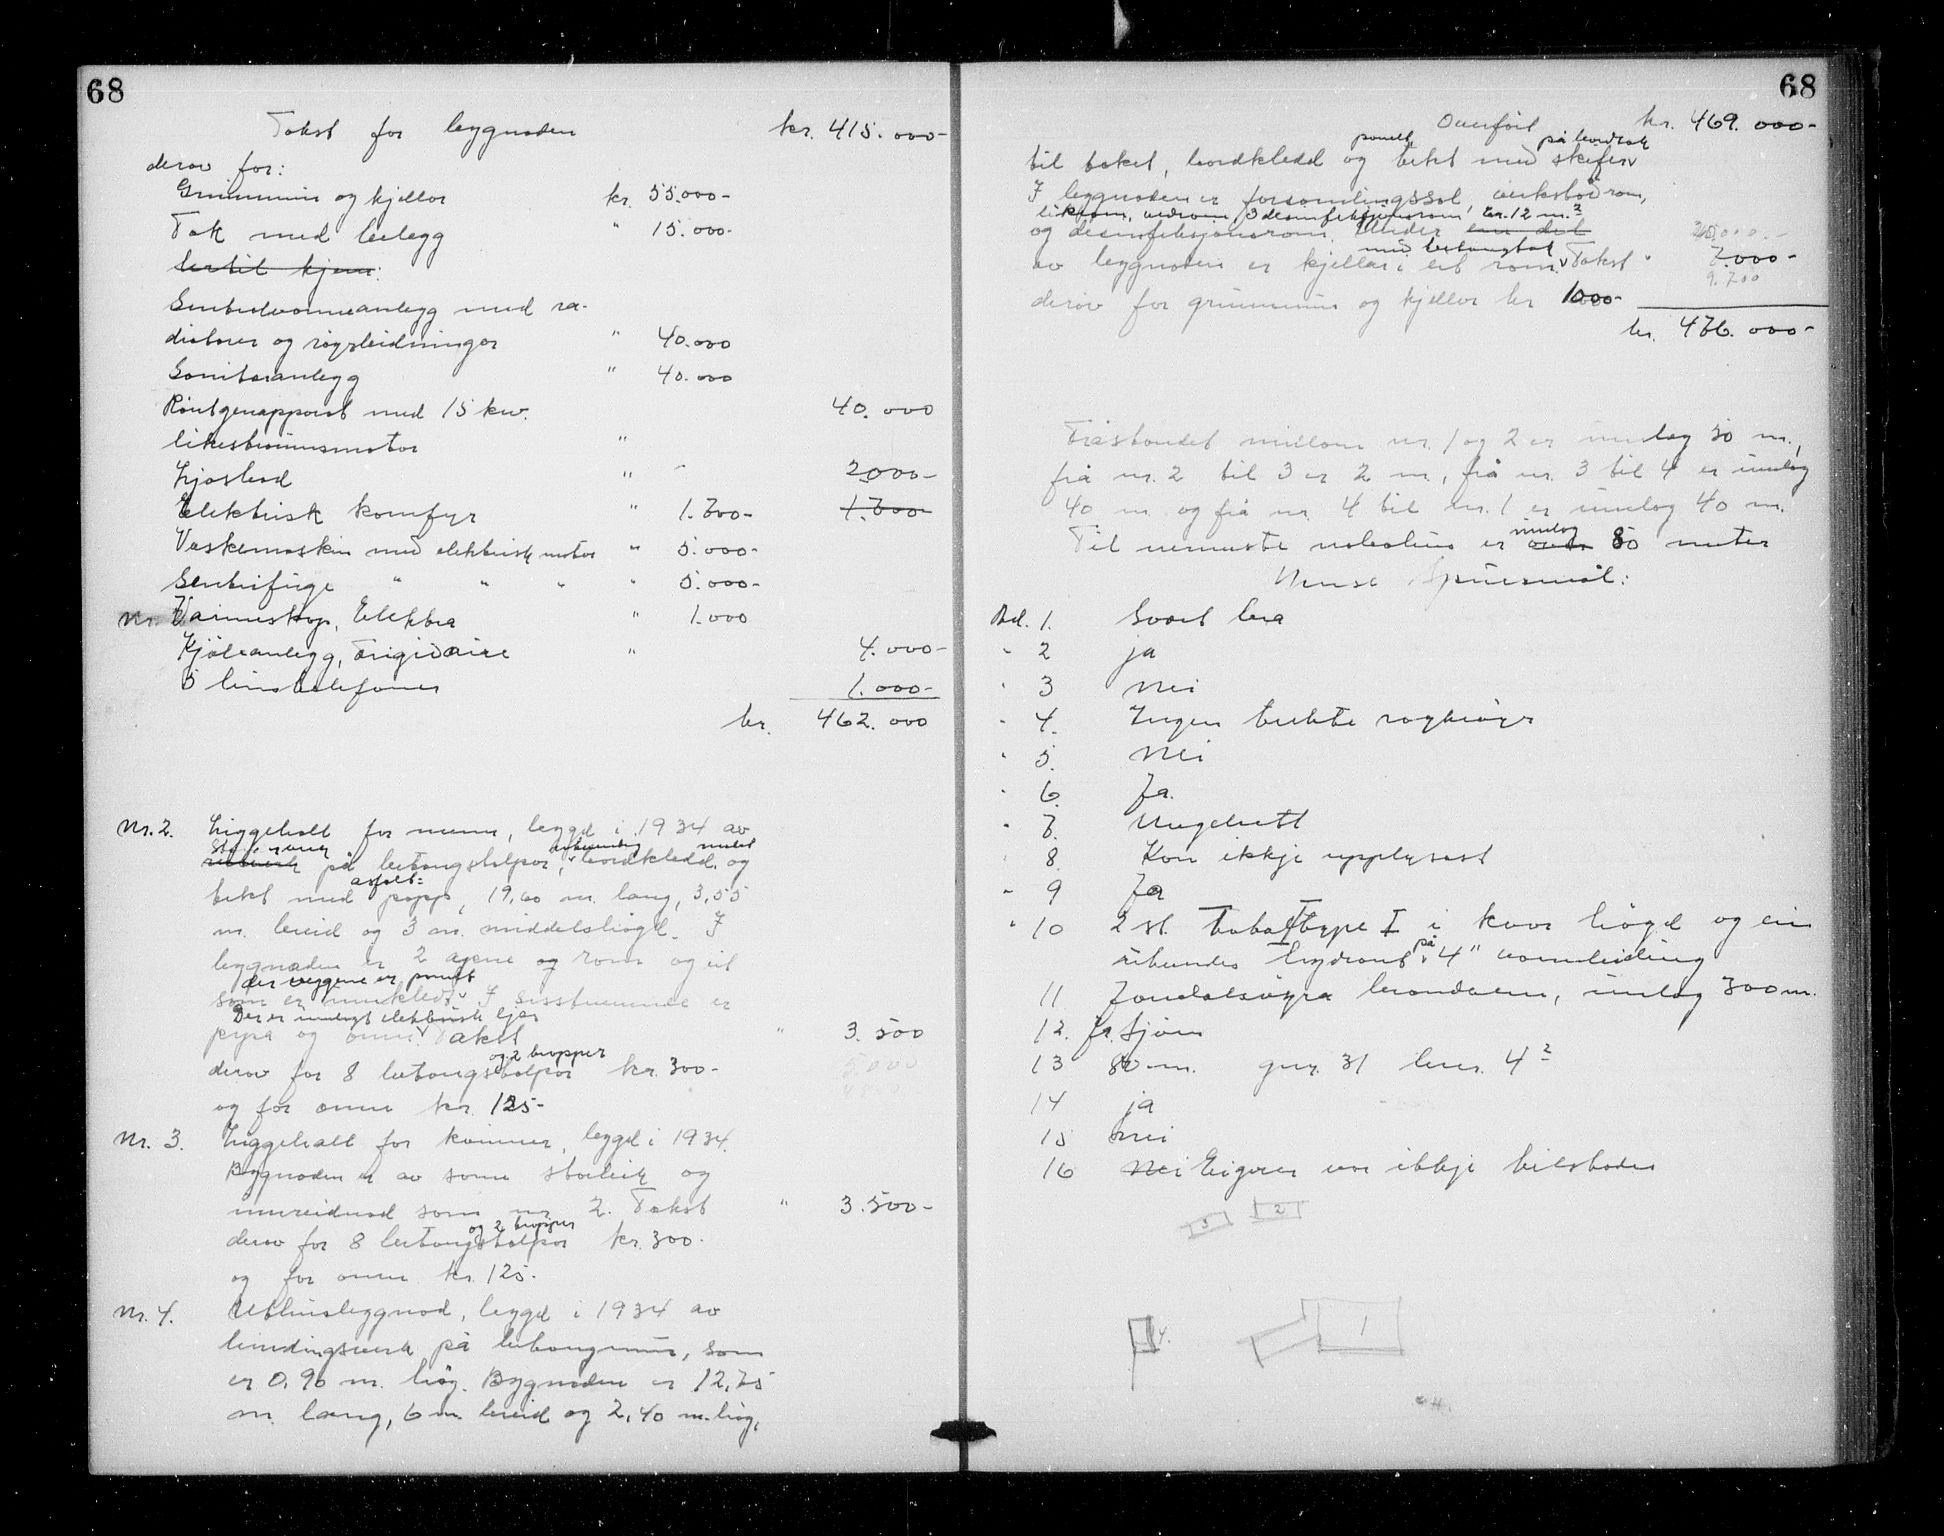 68
Takst for bygnaden kr. 415.000-
derav for:
Grunnmur og kjellar kr. 55.000-
Tak med belegg " 15.000-
hertil kjem:
Sentralvarmeanlegg med ra-
diatorer og røyrleidningar " 40.000
Sanitæranlegg " 40.000
Røntgenapparat med 15 kw. 40.000
likestraumsmotor "
Lysbad " 2000-
Elektrisk komfyr " 1.700- 1.700-
Vaskemaskin med elektrisk motor " 5.000-
Sentrifuge " " " " 5.000-
Varmeskap, Elektra " 1.000
Kjøleanlegg, Frigidaire " 4.000-
5 linstelefoner 1.000-
kr. 462.000
Nr. 2. Liggehall for menn, bygd i 1934 av
på betongstolpar, bordkledd og
tekt med asfalt= papp, 19,60 m. lang, 3,55
m. breid og 3 m. middelshøgd. I
bygnaden er 2 opne rom og eit
der veggene er panelt
som er innkledt. I sisstnemnde er
Der er innlagt elektrisk ljos
pipa og omn. Takst " 3.500
og 2 tropper
derav for 8 betongstolpar kr. 300-
og for omn kr. 125-
Nr. 3. Liggehall for kvinner, bygd i 1934.
Bygnaden er av same storleik og
innreidnad som nr. 2. Takst " 3.500-
og 2 tropper
derav for 8 betongstolpar kr. 300-
og for omn kr. 125-
Nr. 4. Uthusbygnad, bygd i 1934 av
bindingsverk på betongmur, som
er 0,90 m. høg. Bygnaden er 12,75
m. lang, 6 m. breid og 2,40 m. høg,
68
Overført kr. 469.000-
panelt på bordtak
til taket, bordkledd og tekt med skifer
I bygnaden er forsamlingssal, verkstadrom,
likrom, vedrom, 3 desinfeksjonsrom, 12 m.²
og desinfeksjonsrom. Under ein del
med betongtak
av bygnaden er kjellar i eit rom. Takst " 7.000-
9.700
derav for grunnmur og kjellar kr 1000-
kr. 476.000-
Fråstandet millom nr. 1 og 2 er innlag 30 m.,
frå nr. 2 til 3 er 2 m, frå nr. 3 til 4 er innlag
40 m. og frå nr. 4 til nr. 1 er innlag 40 m.
innlag
Til nemaste nabohus er 80 meter
Ymse Spursmål:
Ad. 1. Svært bra
" 2 ja
" 3 Nei
" 4. Ingen tekte røykrøyr
" 5. Nei
" 6. Ja.
" 7. Ungebrett
" 8 Kan ikkje upplysast
" 9 Ja
" 10 2 st. Total type I i kvar høgd og ein
utvendes hydrant på 4" vannleidning
11 brandvern, innlag 300 m.
12. ja. Sjøen
13 80 m. gnr. 31 bnr. 4²
14 ja
15 nei
16 Nei Eigeren var ikkje tilstades
3 2
4. 1